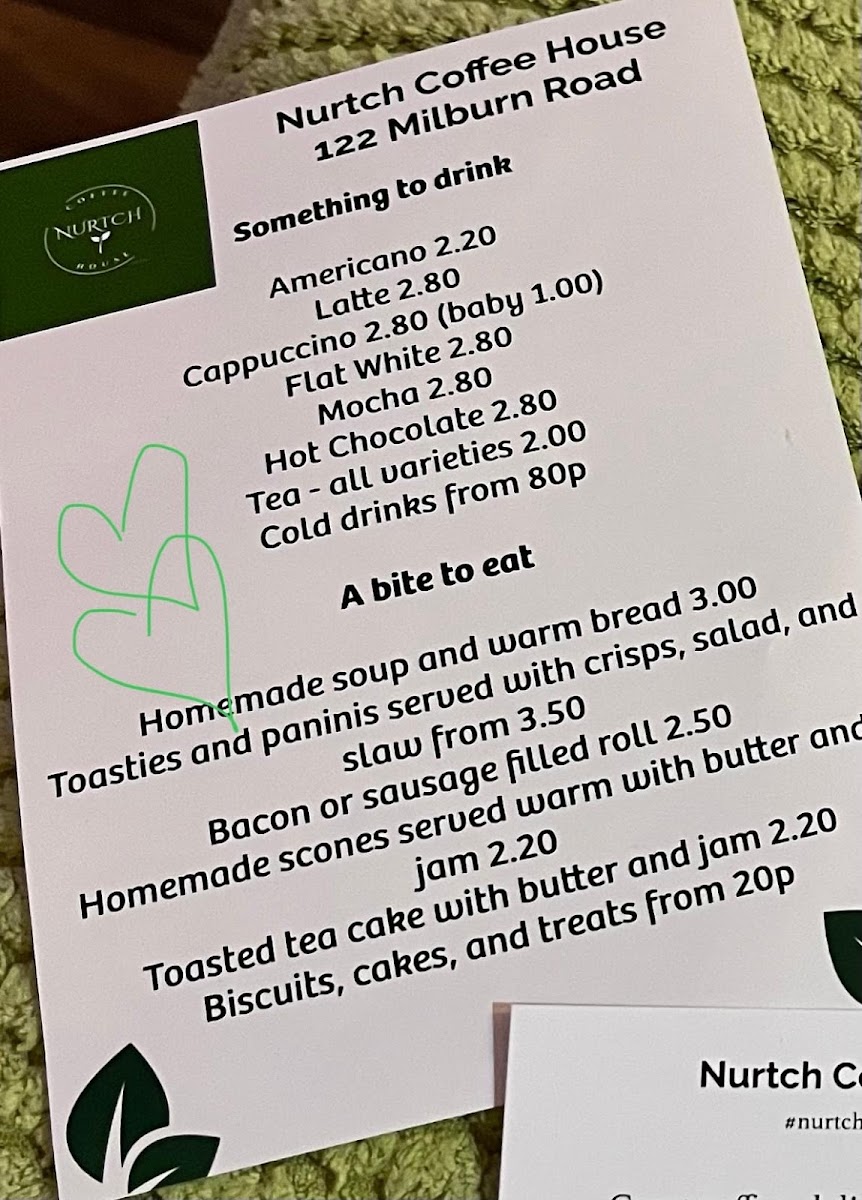 Nurtch Coffee House
122 Milburn Road
COFFEE
NURTCH
HOUSE
Something to drink
Americano 2.20
Latte 2.80
Cappuccino 2.80 (baby 1.00)
Flat White 2.80
Mocha 2.80
Hot Chocolate 2.80
Tea - all varieties 2.00
Cold drinks from 80p
A bite to eat
Homemade soup and warm bread 3.00
Toasties and paninis served with crisps, salad, and
slaw from 3.50
Bacon or sausage filled roll 2.50
Homemade scones served warm with butter and
jam 2.20
Toasted tea cake with butter and jam 2.20
Biscuits, cakes, and treats from 20p
Nurtch Co
#nurtch